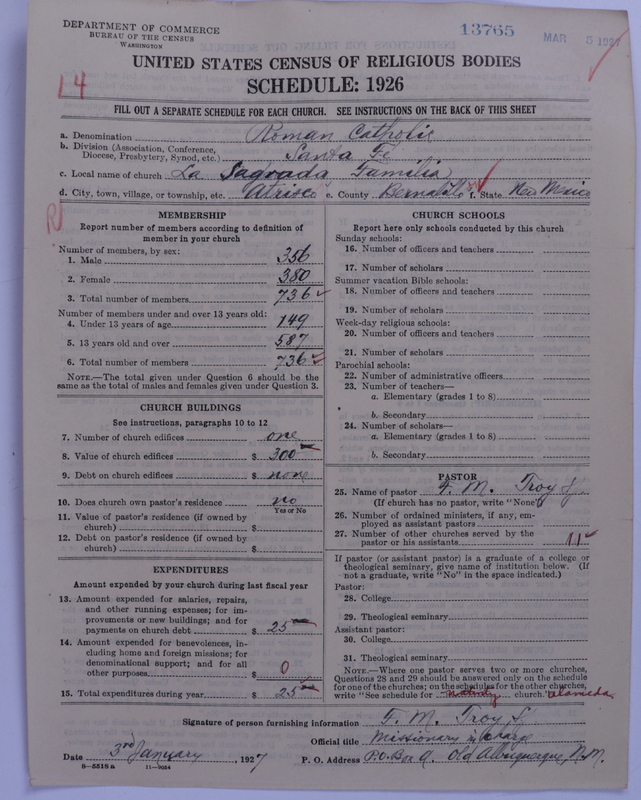 DEPARTMENT OF COMMERCE
BUREAU OF THE CENSUS
WASHINGTON
13765
MAR 5 1927
14
UNITED STATES CENSUS OF RELIGIOUS BODIES
SCHEDULE: 1926
FILL OUT A SEPARATE SCHEDULE FOR EACH CHURCH. SEE INSTRUCTIONS ON THE BACK OF THIS SHEET
a. Denomination Roman Catholic
b. Division (Association, Conference, Diocese, Presbytery, Synod, etc.) Santa Fe
c. Local name of church La Sagrada Familia
d. City, town, village, or township, etc. Atrisco e. County Bernalillo f. State New Mexico
R
MEMBERSHIP
Report number of members according to definition of
member in your church
Number of members, by sex:
1. Male 356
2. Female 380
3. Total number of members 736
Number of members under and over 13 years old:
4. Under 13 years of age 149
5. 13 years old and over 587
6. Total number of members 736
NOTE.—The total given under Question 6 should be the
same as the total of males and females given under Question 3.
CHURCH BUILDINGS
See instructions, paragraphs 10 to 12
7. Number of church edifices one
8. Value of church edifices $ 300
9. Debt on church edifices $ none
10. Does church own pastor's residence no
Yes or No
11. Value of pastor's residence (if owned by
church) $
12. Debt on pastor's residence (if owned by
church) $
EXPENDITURES
Amount expended by your church during last fiscal year
13. Amount expended for salaries, repairs,
and other running expenses; for im-
provements or new buildings; and for
payments on church debt $ 25
14. Amount expended for benevolences, in-
cluding home and foreign missions; for
denominational support; and for all
other purposes $ 0
15. Total expenditures during year $ 25
CHURCH SCHOOLS
Report here only schools conducted by this church
Sunday schools:
16. Number of officers and teachers
17. Number of scholars
Summer vacation Bible schools:
18. Number of officers and teachers
19. Number of scholars
Week-day religious schools:
20. Number of officers and teachers
21. Number of scholars
Parochial schools:
22. Number of administrative officers
23. Number of teachers—
a. Elementary (grades 1 to 8)
b. Secondary
24. Number of scholars—
a. Elementary (grades 1 to 8)
b. Secondary
PASTOR
25. Name of pastor F. M. Troy SJ
(If church has no pastor, write "None")
26. Number of ordained ministers, if any, em-
ployed as assistant pastors
27. Number of other churches served by the
pastor or his assistants 11
If pastor (or assistant pastor) is a graduate of a college or
theological seminary, give name of institution below. (If
not a graduate, write "No" in the space indicated.)
Pastor:
28. College
29. Theological seminary
Assistant pastor:
30. College
31. Theological seminary
NOTE.—Where one pastor serves two or more churches,
Questions 28 and 29 should be answered only on the schedule
for one of the churches; on the schedules for the other churches,
write "See schedule for church. Alameda
Signature of person furnishing information F. M. Troy SJ
Official title Missionary in charge
Date 3rd January, 1927 P. O. Address P.O. Box A. Old Albuquerque, N.M.
8—5518 a 11—9064